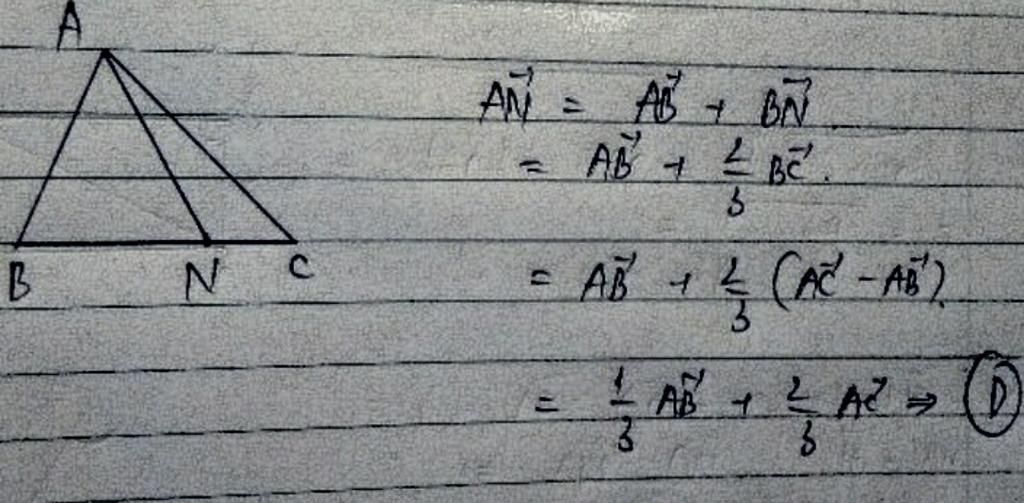 A
B N C
AN⃗ = AB⃗ + BN⃗
= AB⃗ + 2/3 BC⃗.
= AB⃗ + 2/3 (AC⃗ - AB⃗).
= 1/3 AB⃗ + 2/3 AC⃗ ⇒ D